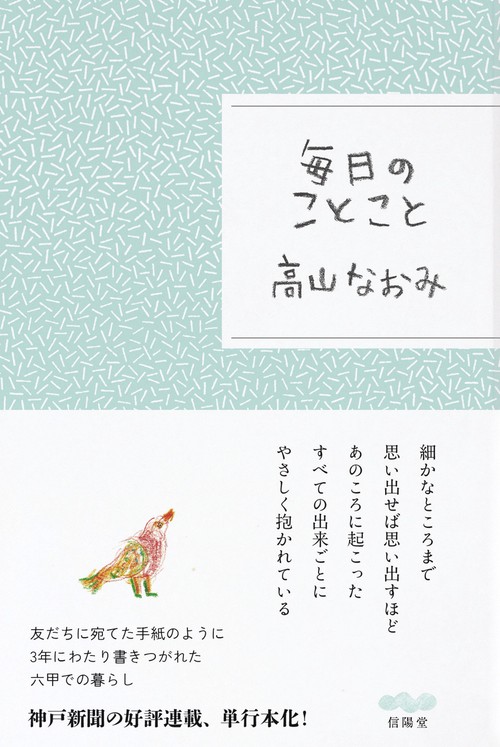 毎日の
ことこと
高山なおみ
細かなところまで
思い出せば思い出すほど
あのころに起こった
すべての出来ごとに
やさしく抱かれている
友だちに宛てた手紙のように
3年にわたり書きつがれた
六甲での暮らし
神戸新聞の好評連載、単行本化！
信陽堂